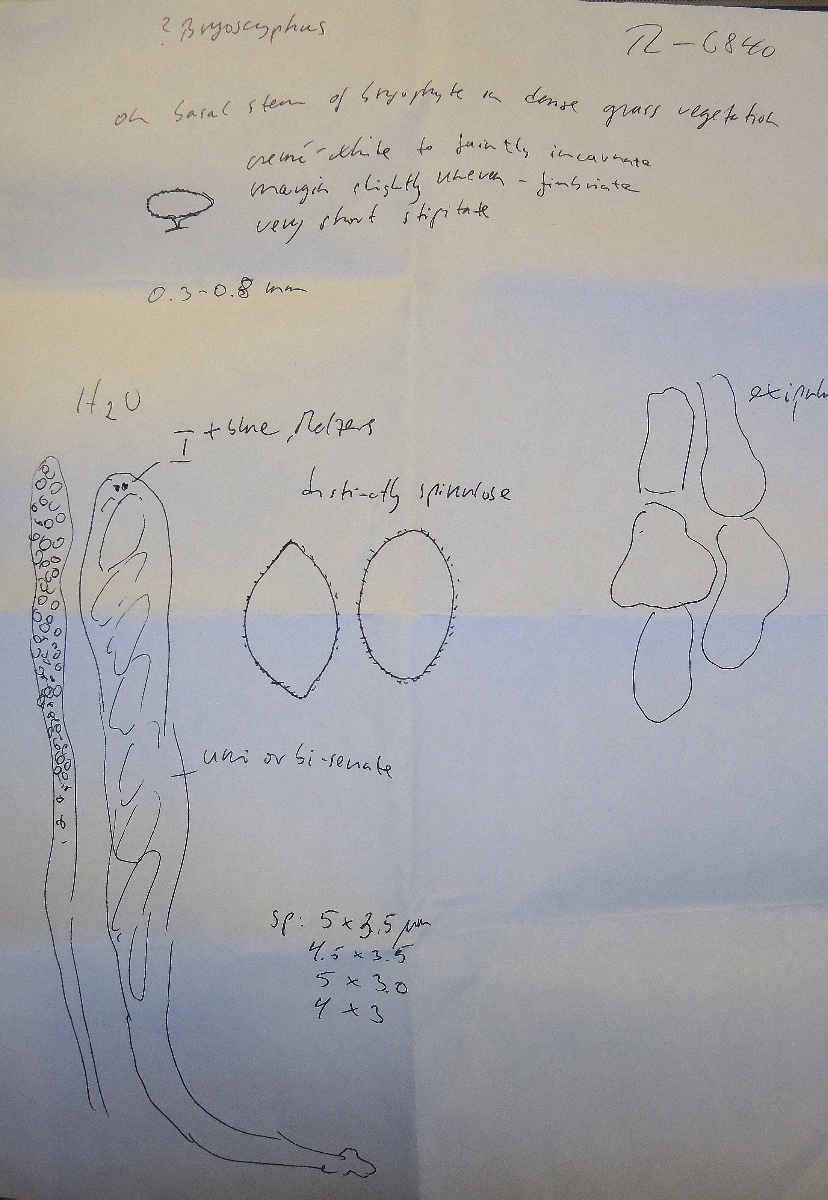 ? Bryoscyphus
π-6840
on basal stem of bryophyte in dense grass vegetation
cremé-white to faintly incarnate
margin slightly uneven - fimbriate
very short stipitate
0.3-0.8 mm
H2O
I + blue, Melzers
exipulu
distinctly spinulose
uni or bi-seriate
sp: 5 x 3.5 µm
4.5 x 3.5
5 x 3.0
4 x 3